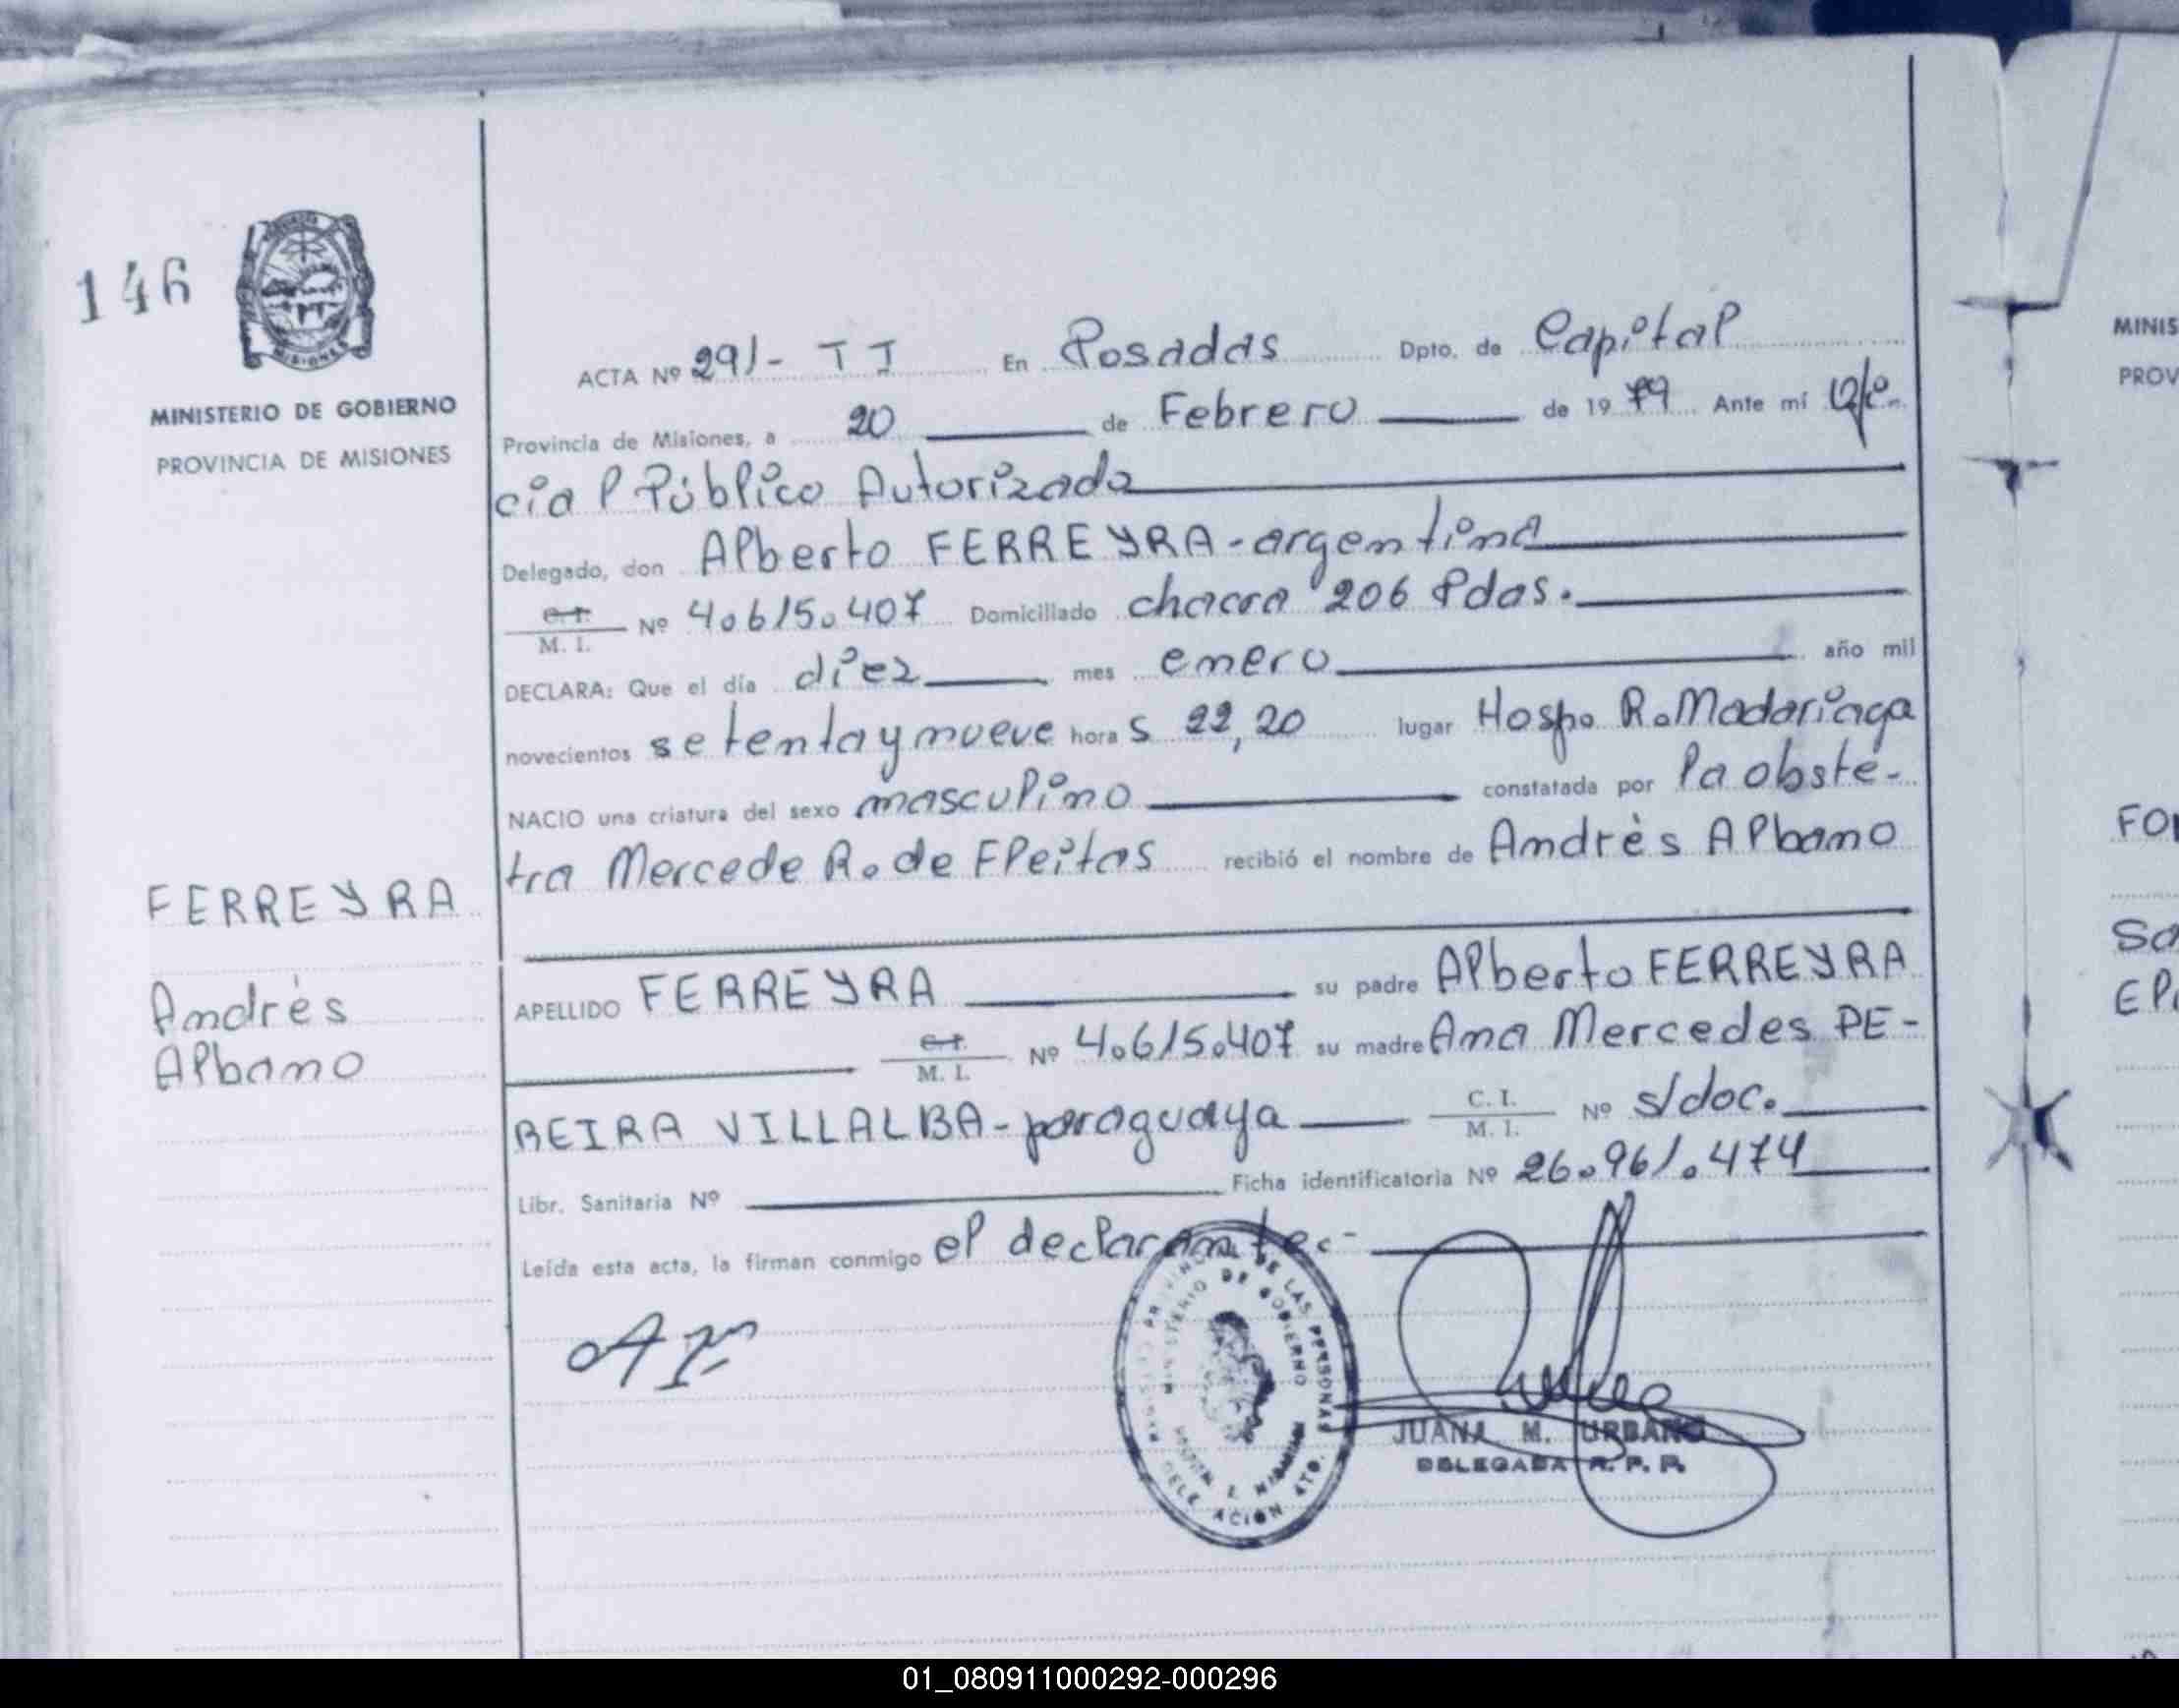 146
MISIONES
MINISTERIO DE GOBIERNO
PROVINCIA DE MISIONES
ACTA Nº 291- TI En Posadas Dpto. de Capital
Provincia de Misiones, a 20 de Febrero de 1979 Ante mí Ofi
cial Público Autorizada
Delegado, don Alberto FERREYRA-argentina
C.I. M. I. Nº 4.615.407 Domiciliado chacra 206 Pdas.
DECLARA: Que el día diez mes enero año mil
novecientos setenta y nueve hora s 22,20 lugar Hosp. R. Madariaga
NACIO una criatura del sexo masculino constatada por la obste-
tra Mercede R. de Fleitas recibió el nombre de Andrès Albano
FERREYRA
Andrès
Albano
APELLIDO FERREYRA su padre Alberto FERREYRA
C.I. M. I. Nº 4.615.407 su madre Ana Mercedes PE-
REIRA VILLALBA-paraguaya C. I. M. I. Nº s/doc.
Libr. Sanitaria Nº Ficha identificatoria Nº 26.961.474
Leída esta acta, la firman conmigo el declarante.-
AF
DE LAS PERSONAS
MINISTERIO DE GOBIERNO
DELEGACION 4TO.
JUANA M. URBANO
DELEGADA R. P. P.
MINIS
PROV
FO
So
EP
01_080911000292-000296